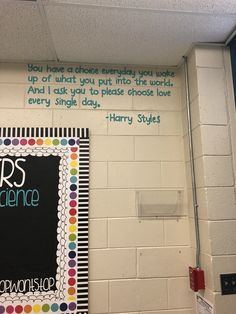 You have a choice everyday you wake
up of what you put into the world.
And I ask you to please choose love
every single day.
-Harry Styles
RS
cience
opwontstop